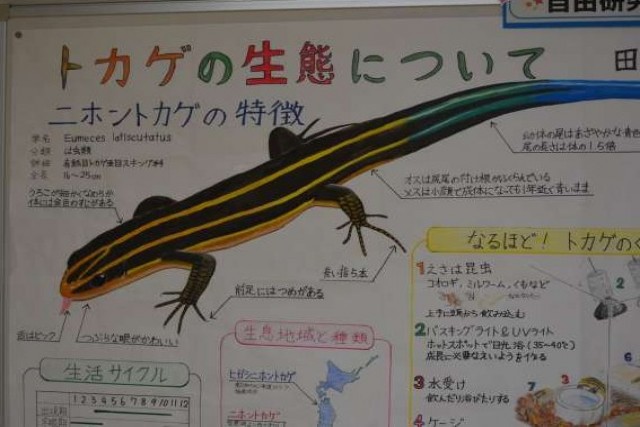 自由研究
トカゲの生態について
田
ニホントカゲの特徴
学名 Eumeces latiscutatus
分類 は虫類
全長 16～25cm
うろこが細かくなめらか
体には金色のすじがある
幼体の尾はあざやかな青色
尾の長さは体の1.5倍
オスは成尾の付け根がふくらんでいる
メスは小顔で成体になっても1年近く青います
長い指5本
前足にはつめがある
舌はピンク
つぶらな眼がかわいい
なるほど！ トカゲのく
1 えさは昆虫
コオロギ、ミルワーム、くもなど
上手に頭から飲み込む
2 バスキングライト&UVライト
ホットスポットで日光浴(35～40℃)
3 水受け
飲んだり浴びたりする
4 ケージ
2
7
3
生息地域と種類
ヒガシニホントカゲ
ニホントカゲ
生活サイクル
1 2 3 4 5 6 7 8 9 10 11 12
出現期